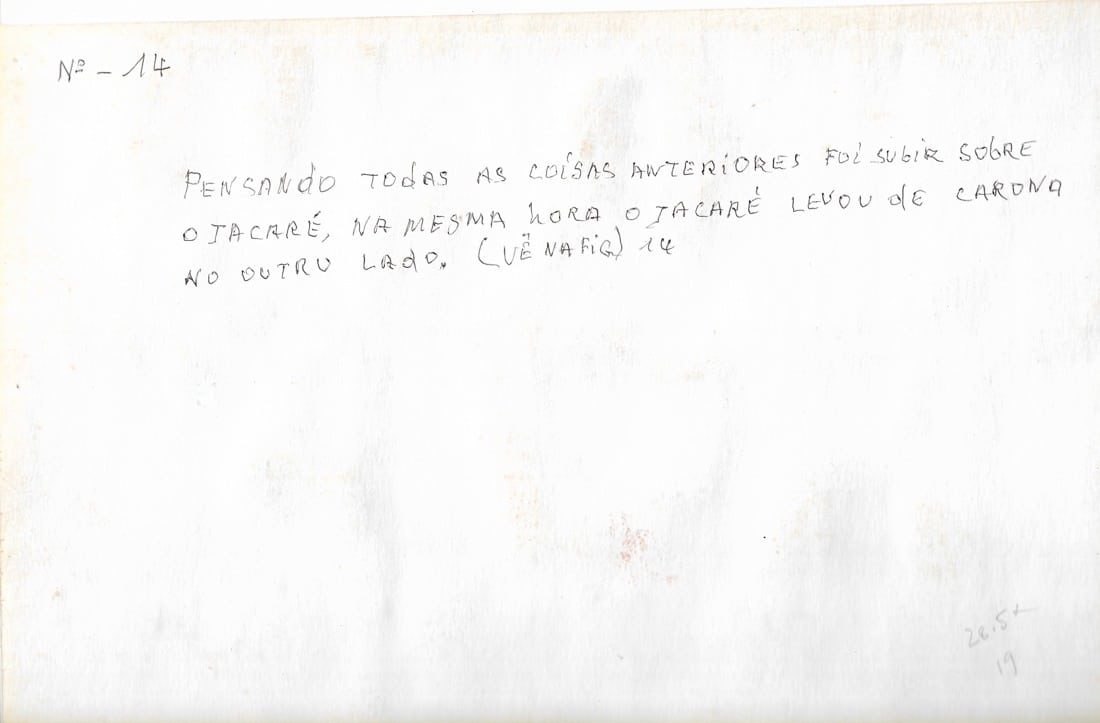 Nº - 14
PENSANdO TOdAS AS COÍSAS ANTERiORES FOi SUBiR SOBRE
O JACARÉ, NA MESMA hORA O JACARÉ LEVOU dE CARONA
NO OUTRO LADO. (VÊ NA FiG) 14
28.5x
19